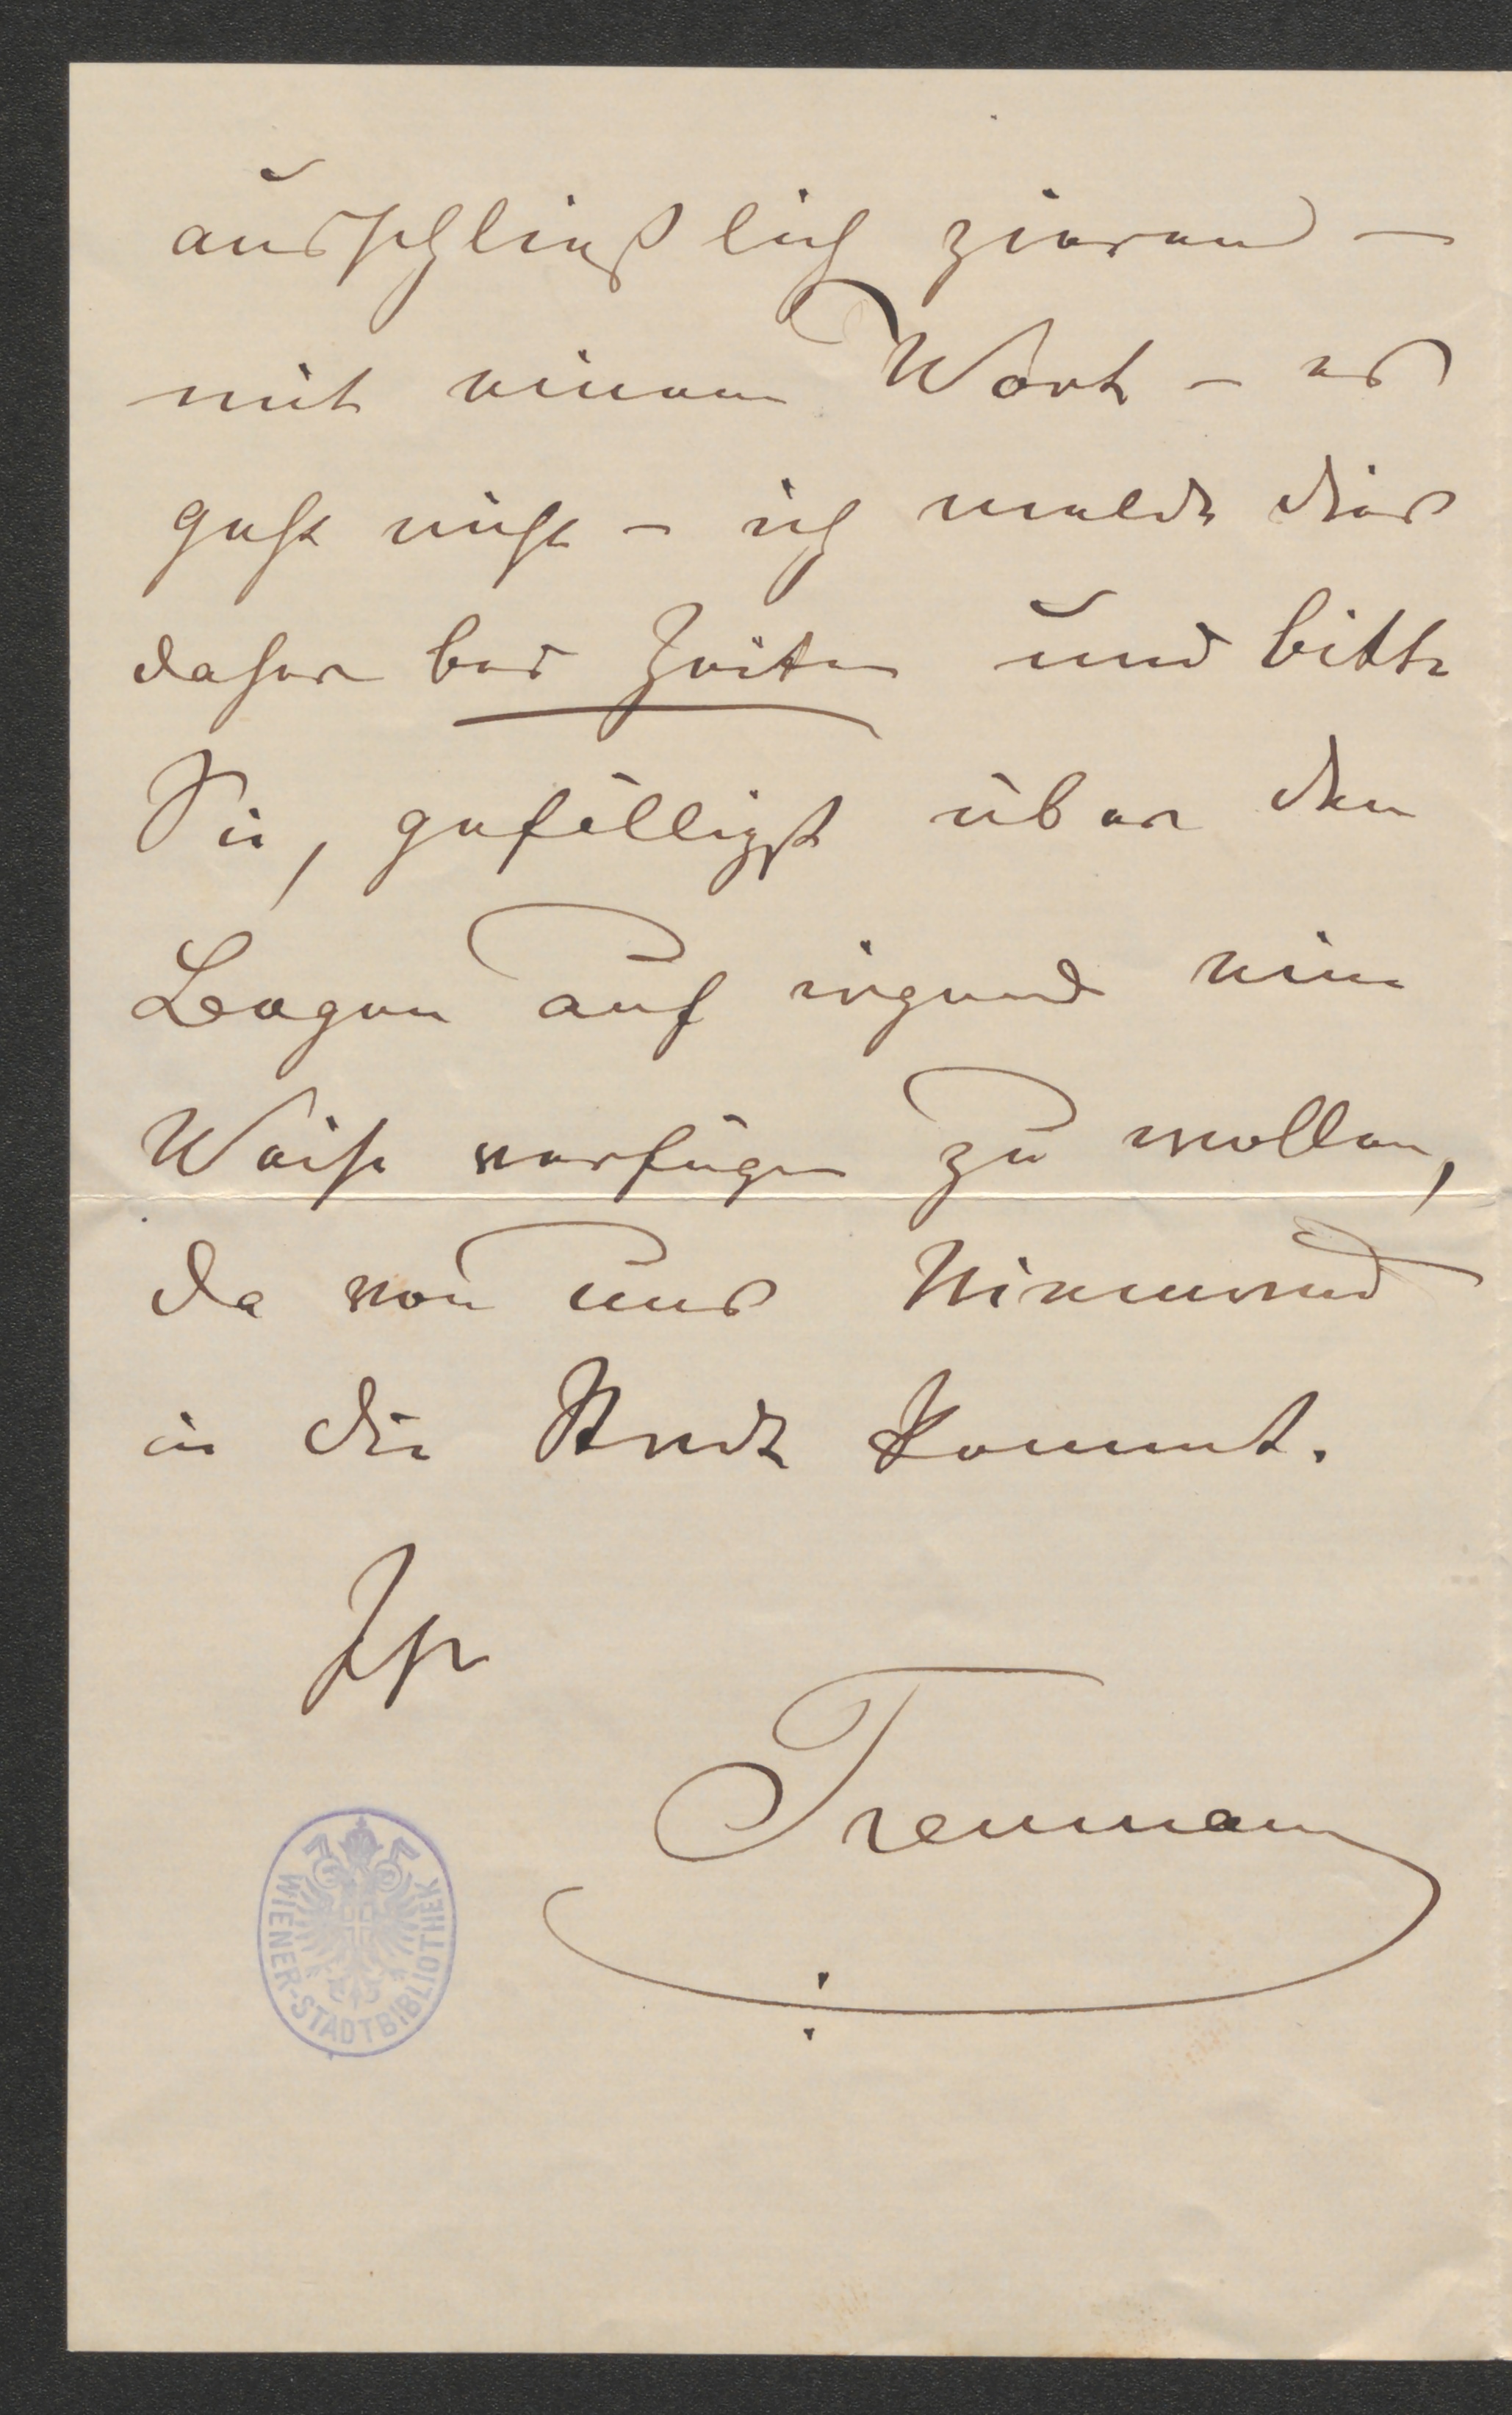 ausschließlich zierend –
mit einem Wort – es
geht nicht – ich melde dies
daher bei Zeiten und bitte
Sie, gefälligst über den
auf irgend eine
Weise verfügen zu wollen,
da von uns Niemand
in die Stadt kommt.
Ihr
Treumann
WIENER-STADTBIBLIOTHEK